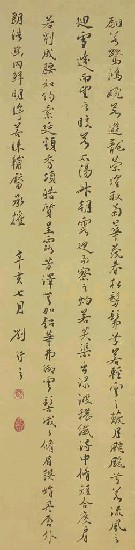 翩若驚鴻婉若遊龍榮曜秋菊華茂春松髣髴兮若輕雲之蔽月飄飖兮若流風之
迴雪遠而望之皎若太陽升朝霞迫而察之灼若芙蕖出淥波穠纖得中脩短合度肩
若削成腰如約素延頸秀項皓質呈露芳澤無加鉛華弗御雲髻峩峩脩眉聯娟丹唇外
朗皓齒內鮮明眸善睞靨輔承權
辛亥七月劉